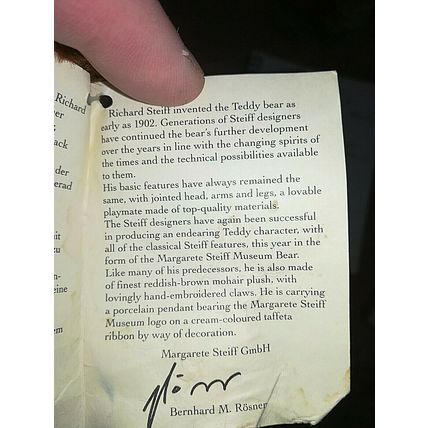 Richard
er
ack
der
erad
it
n-
eine
em
Richard Steiff invented the Teddy bear as
early as 1902. Generations of Steiff designers
have continued the bear's further development
over the years in line with the changing spirits of
the times and the technical possibilities available
to them.
His basic features have always remained the
same, with jointed head, arms and legs, a lovable
playmate made of top-quality materials.
The Steiff designers have again been successful
in producing an endearing Teddy character, with
all of the classical Steiff features, this year in the
form of the Margarete Steiff Museum Bear.
Like many of his predecessors, he is also made
of finest reddish-brown mohair plush, with
lovingly hand-embroidered claws. He is carrying
a porcelain pendant bearing the Margarete Steiff
Museum logo on a cream-coloured taffeta
ribbon by way of decoration.
Margarete Steiff GmbH
Bernhard M. Rösner